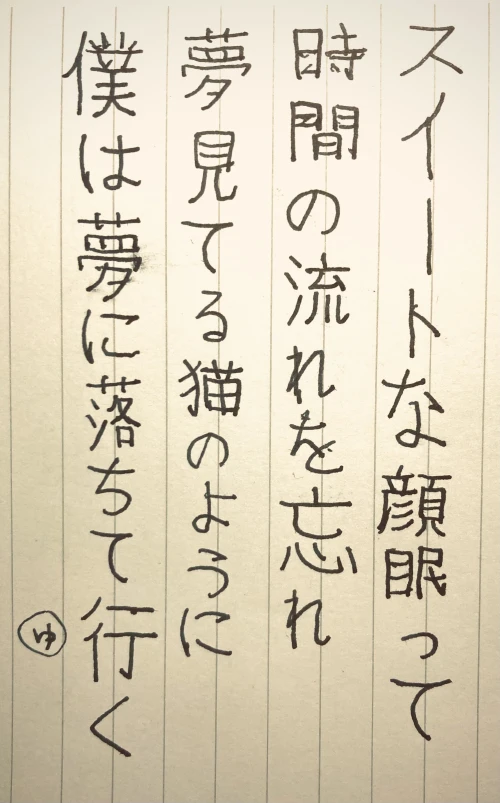 スイートな顔眠って
時間の流れを忘れ
夢見てる猫のように
僕は夢に落ちて行く
ゆ